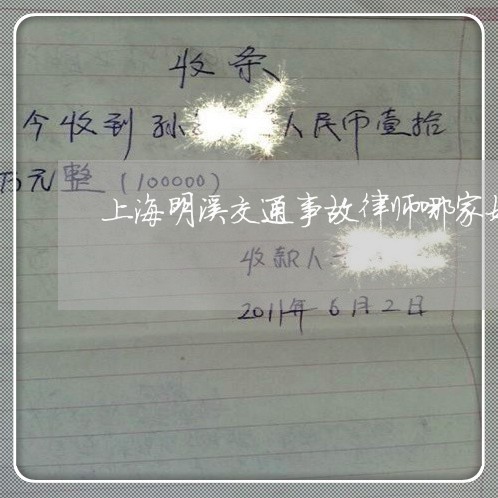 收条
今收到孙人民币壹拾
万元整(100000)
上海明溪交通事故律师哪家
收款人
2011年6月2日